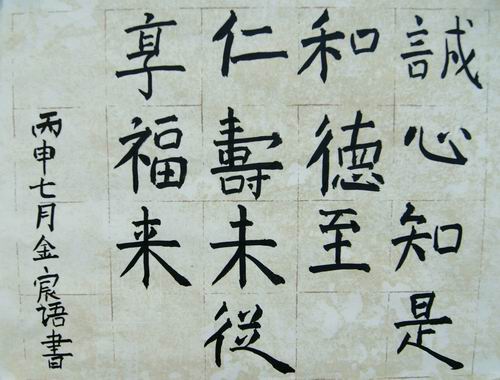 誠心知是
和德至
仁壽未從
享福来
丙申七月金宸語書